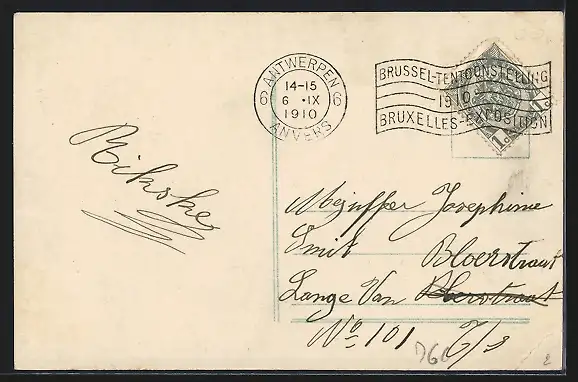 ANTWERPEN
6 14-15 6
6 ·IX
1910
ANVERS
BRUSSEL-TENTOONSTELLING
1910
BRUXELLES-EXPOSITION
1c 1c
Rikske
Mejuffer Josephine
Smit Bloerstraat
Lange Van Bloerstraat
No 101 T/s
D60